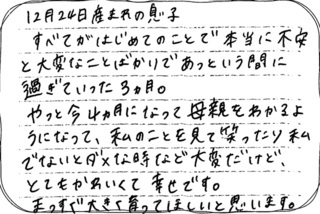 12月24日産まれの息子
すべてがはじめてのことで本当に不安
と大変なことばかりであっという間に
過ぎていった3ヵ月。
やっと今4ヵ月になって母親もわかるよ
うになって、私のことを見て笑ったり私
でないとダメな時など大変だけど、
とてもかわいくて幸せです。
まっすぐ大きく育ってほしいと思います。